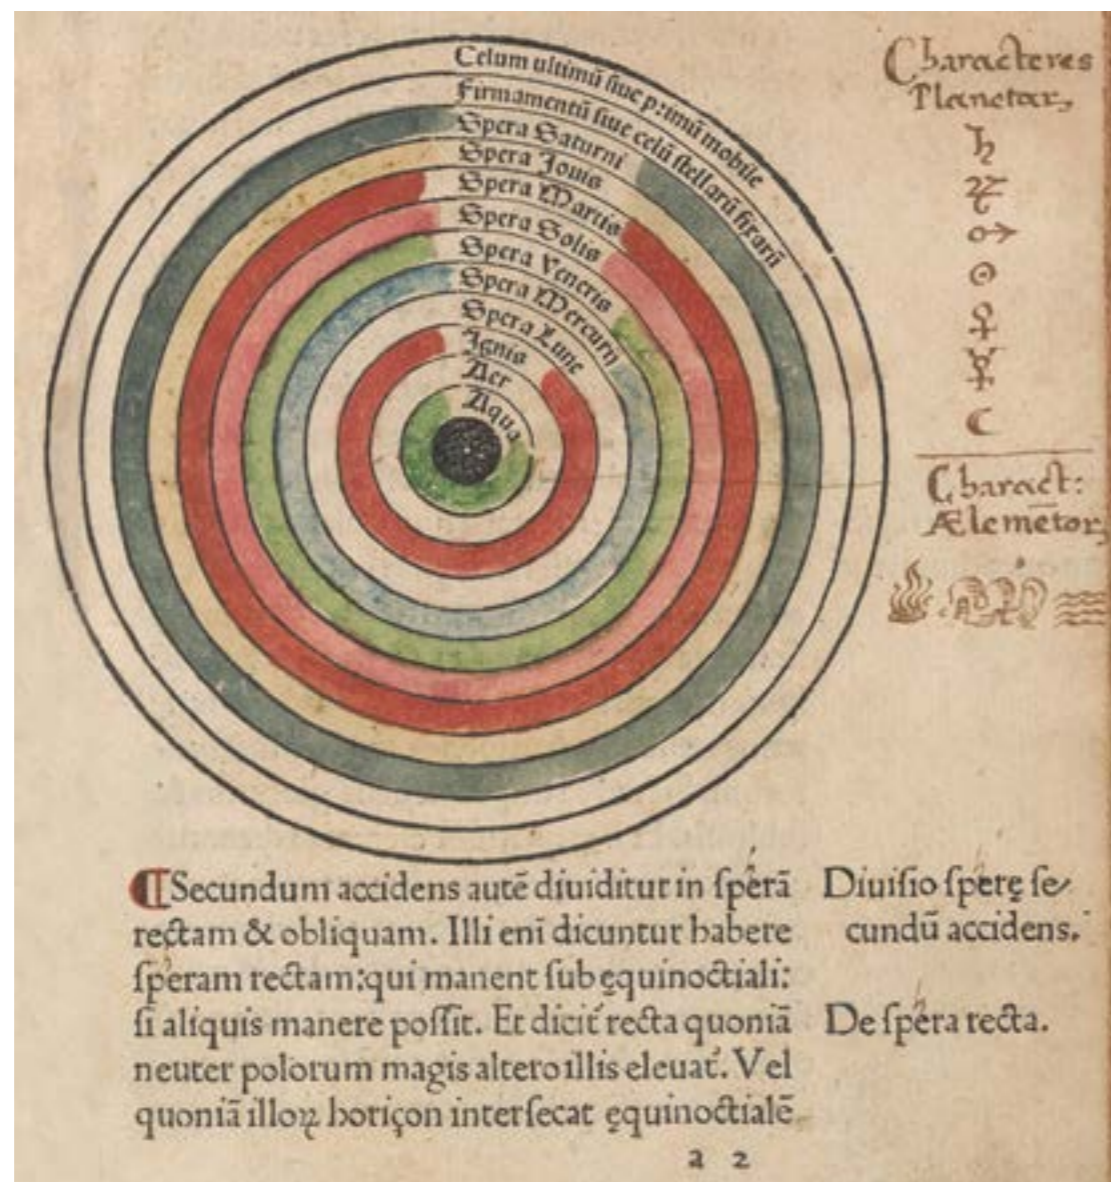 Celum ultimũ ſiue primũ mobile
Firmamentũ ſiue celũ ſtellarũ fixarũ
Spera Saturni
Spera Jouis
Spera Martis
Spera Solis
Spera Veneris
Spera Mercurij
Spera Lune
Ignis
Aer
Aqua
Characteres
Planetar,
♄
♃
♂
☉
♀
☿
☾
Charact:
Ælemẽtor,
¶ Secundum accidens autẽ diuiditur in ſperã
rectam & obliquam. Illi eni dicuntur habere
ſperam rectam: qui manent ſub ęquinoctiali:
ſi aliquis manere poſſit. Et dicit᷑ recta quoniã
neuter polorum magis altero illis eleuat᷑. Vel
quoniã illoꝝ horiçon interſecat ęquinoctialẽ
Diuiſio ſperę ſe/
cundũ accidens.
De ſpera recta.
a 2